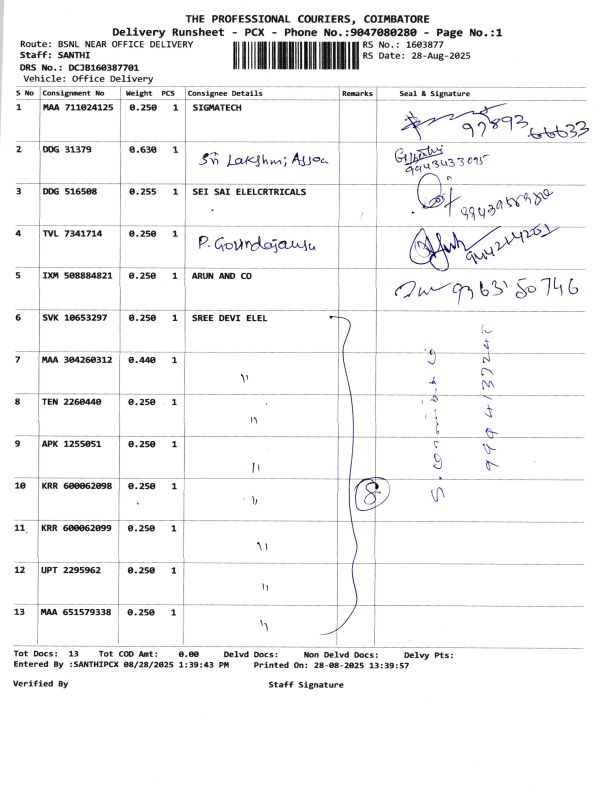 THE PROFESSIONAL COURIERS, COIMBATORE
Delivery Runsheet - PCX - Phone No.:9047080280 - Page No.:1
Route: BSNL NEAR OFFICE DELIVERY RS No.: 1603877
Staff: SANTHI RS Date: 28-Aug-2025
DRS No.: DCJB160387701
Vehicle: Office Delivery
S No Consignment No Weight PCS Consignee Details Remarks Seal & Signature
1 MAA 711024125 0.250 1 SIGMATECH 97893 66633
2 DDG 31379 0.630 1 Sri Lakshmi Assoc 9943433095
3 DDG 516508 0.255 1 SEI SAI ELELCRTRICALS
4 TVL 7341714 0.250 1 P. Govindarajulu
5 IXM 508884821 0.250 1 ARUN AND CO 93631 50746
6 SVK 10653297 0.250 1 SREE DEVI ELEL
7 MAA 304260312 0.440 1 "
8 TEN 2260440 0.250 1 "
9 APK 1255051 0.250 1 "
10 KRR 600062098 0.250 1 " 8
11 KRR 600062099 0.250 1 "
12 UPT 2295962 0.250 1 "
13 MAA 651579338 0.250 1 "
Tot Docs: 13 Tot COD Amt: 0.00 Delvd Docs: Non Delvd Docs: Delvy Pts:
Entered By :SANTHIPCX 08/28/2025 1:39:43 PM Printed On: 28-08-2025 13:39:57
Verified By Staff Signature